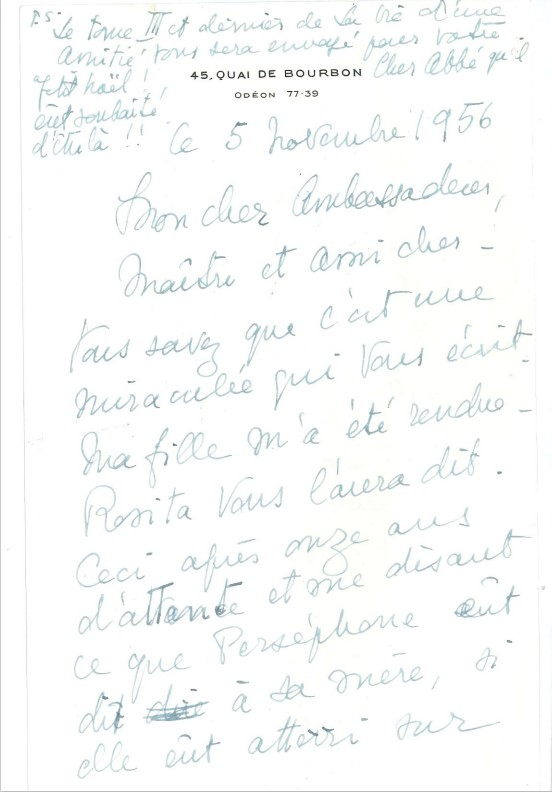 P.S. Le tome III et dernier de La Vie d'une
Amitié vous sera envoyé pour votre
petit Noël !
Cher Abbé qu'il
eût souhaité
d'être là !!
45, QUAI DE BOURBON
ODÉON 77-39
Le 5 novembre 1956
Mon cher Ambassadeur,
Maître et ami cher -
Vous savez que c'est une
miraculée qui vous écrit.
Ma fille m'a été rendue -
Rosita vous l'aura dit.
Ceci après onze ans
d'attente et me disant
ce que Perséphone eût
dit à sa mère, si
elle eût atterri sur